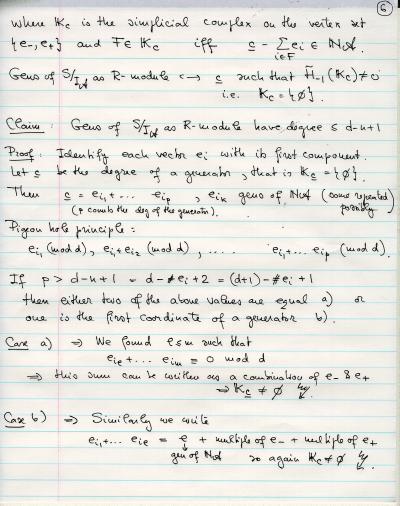 6
where 𝕂c is the simplicial complex on the vertex set
{e-, e+} and F ∈ 𝕂c iff c - Σ_{i∈F} ei ∈ ℕA.
Gens of S/I_A as R-module ↔ c such that H̃-1(𝕂c) ≠ 0
i.e. 𝕂c = {∅}.
Claim: Gens of S/I_A as R-module have degree ≤ d-n+1
Proof: Identify each vector ei with its first component.
Let c be the degree of a generator, that is 𝕂c = {∅}.
Then c = ei1 + ... eip, eik gens of ℕA (some repeated possibly)
(p counts the deg of the generator).
Pigeon hole principle:
ei1 (mod d), ei1+ei2 (mod d), .... ei1+... eip (mod d).
If p > d-n+1 = d - #ei + 2 = (d+1) - #ei + 1
then either two of the above values are equal a) or
one is the first coordinate of a generator b).
Case a) ⇒ We found l ≤ m such that
eil + ... eim = 0 mod d
⇒ this sum can be written as a combination of e- & e+
⇒ 𝕂c ≠ ∅ ↯.
Case b) ⇒ Similarly we write
ei1 + ... eil = e + multiple of e- + multiple of e+
gen of ℕA so again 𝕂c ≠ ∅ ↯.